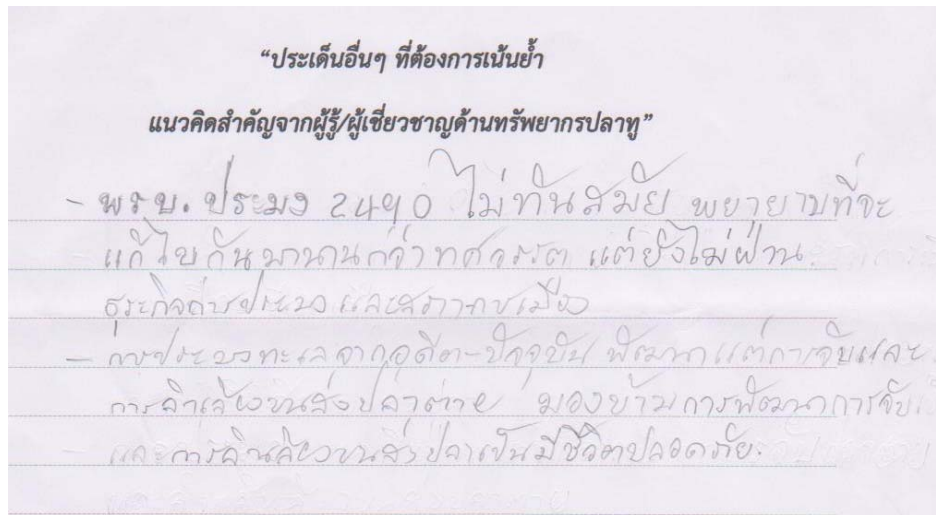 “ประเด็นอื่นๆ ที่ต้องการเน้นย้ำ
แนวคิดสำคัญจากผู้รู้/ผู้เชี่ยวชาญด้านทรัพยากรปลาทู”
- พรบ. ประมง 2490 ไม่ทันสมัย พยายามที่จะ
แก้ไขกันมานานกว่าทศวรรต แต่ยังไม่ผ่าน
ธุระกิจ และ เมือง
- การประมงทะเลจากอดีต-ปัจจุบัน พัฒนาแต่การจับและ
การลำเลียงขนส่งปลาตาย มองข้ามการพัฒนาการจับ
และการลำเลียงขนส่งปลาเป็นมีชีวิตปลอดภัย.